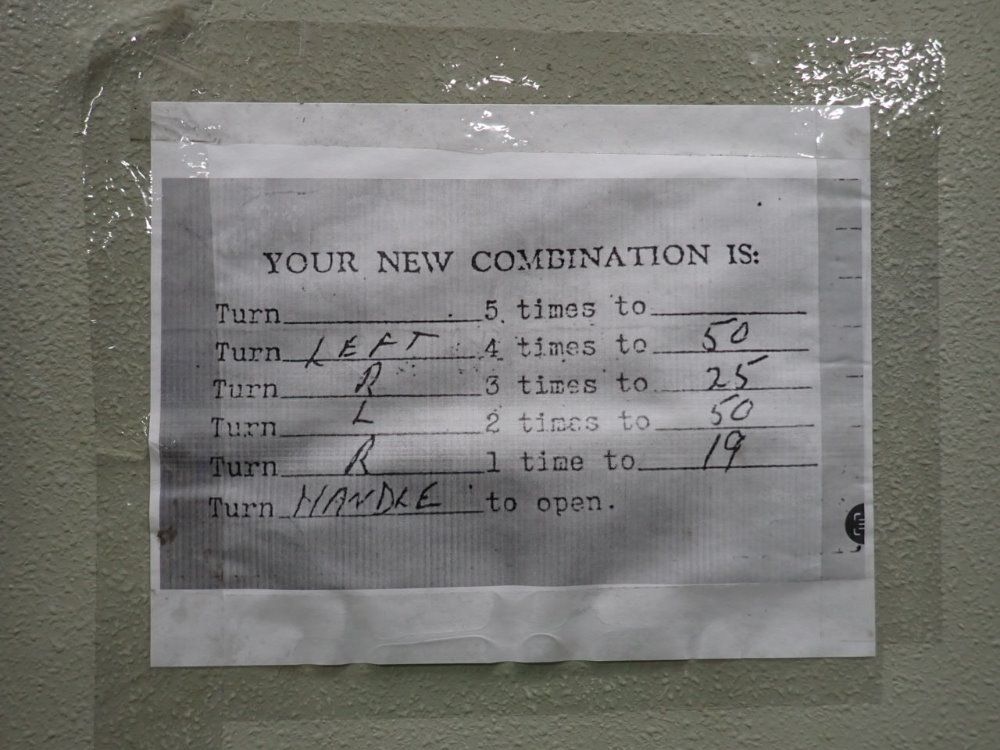 YOUR NEW COMBINATION IS:
Turn 5 times to
Turn LEFT 4 times to 50
Turn R 3 times to 25
Turn L 2 times to 50
Turn R 1 time to 19
Turn HANDLE to open.